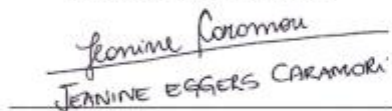 Jeanine Caramori
JEANINE EGGERS CARAMORI